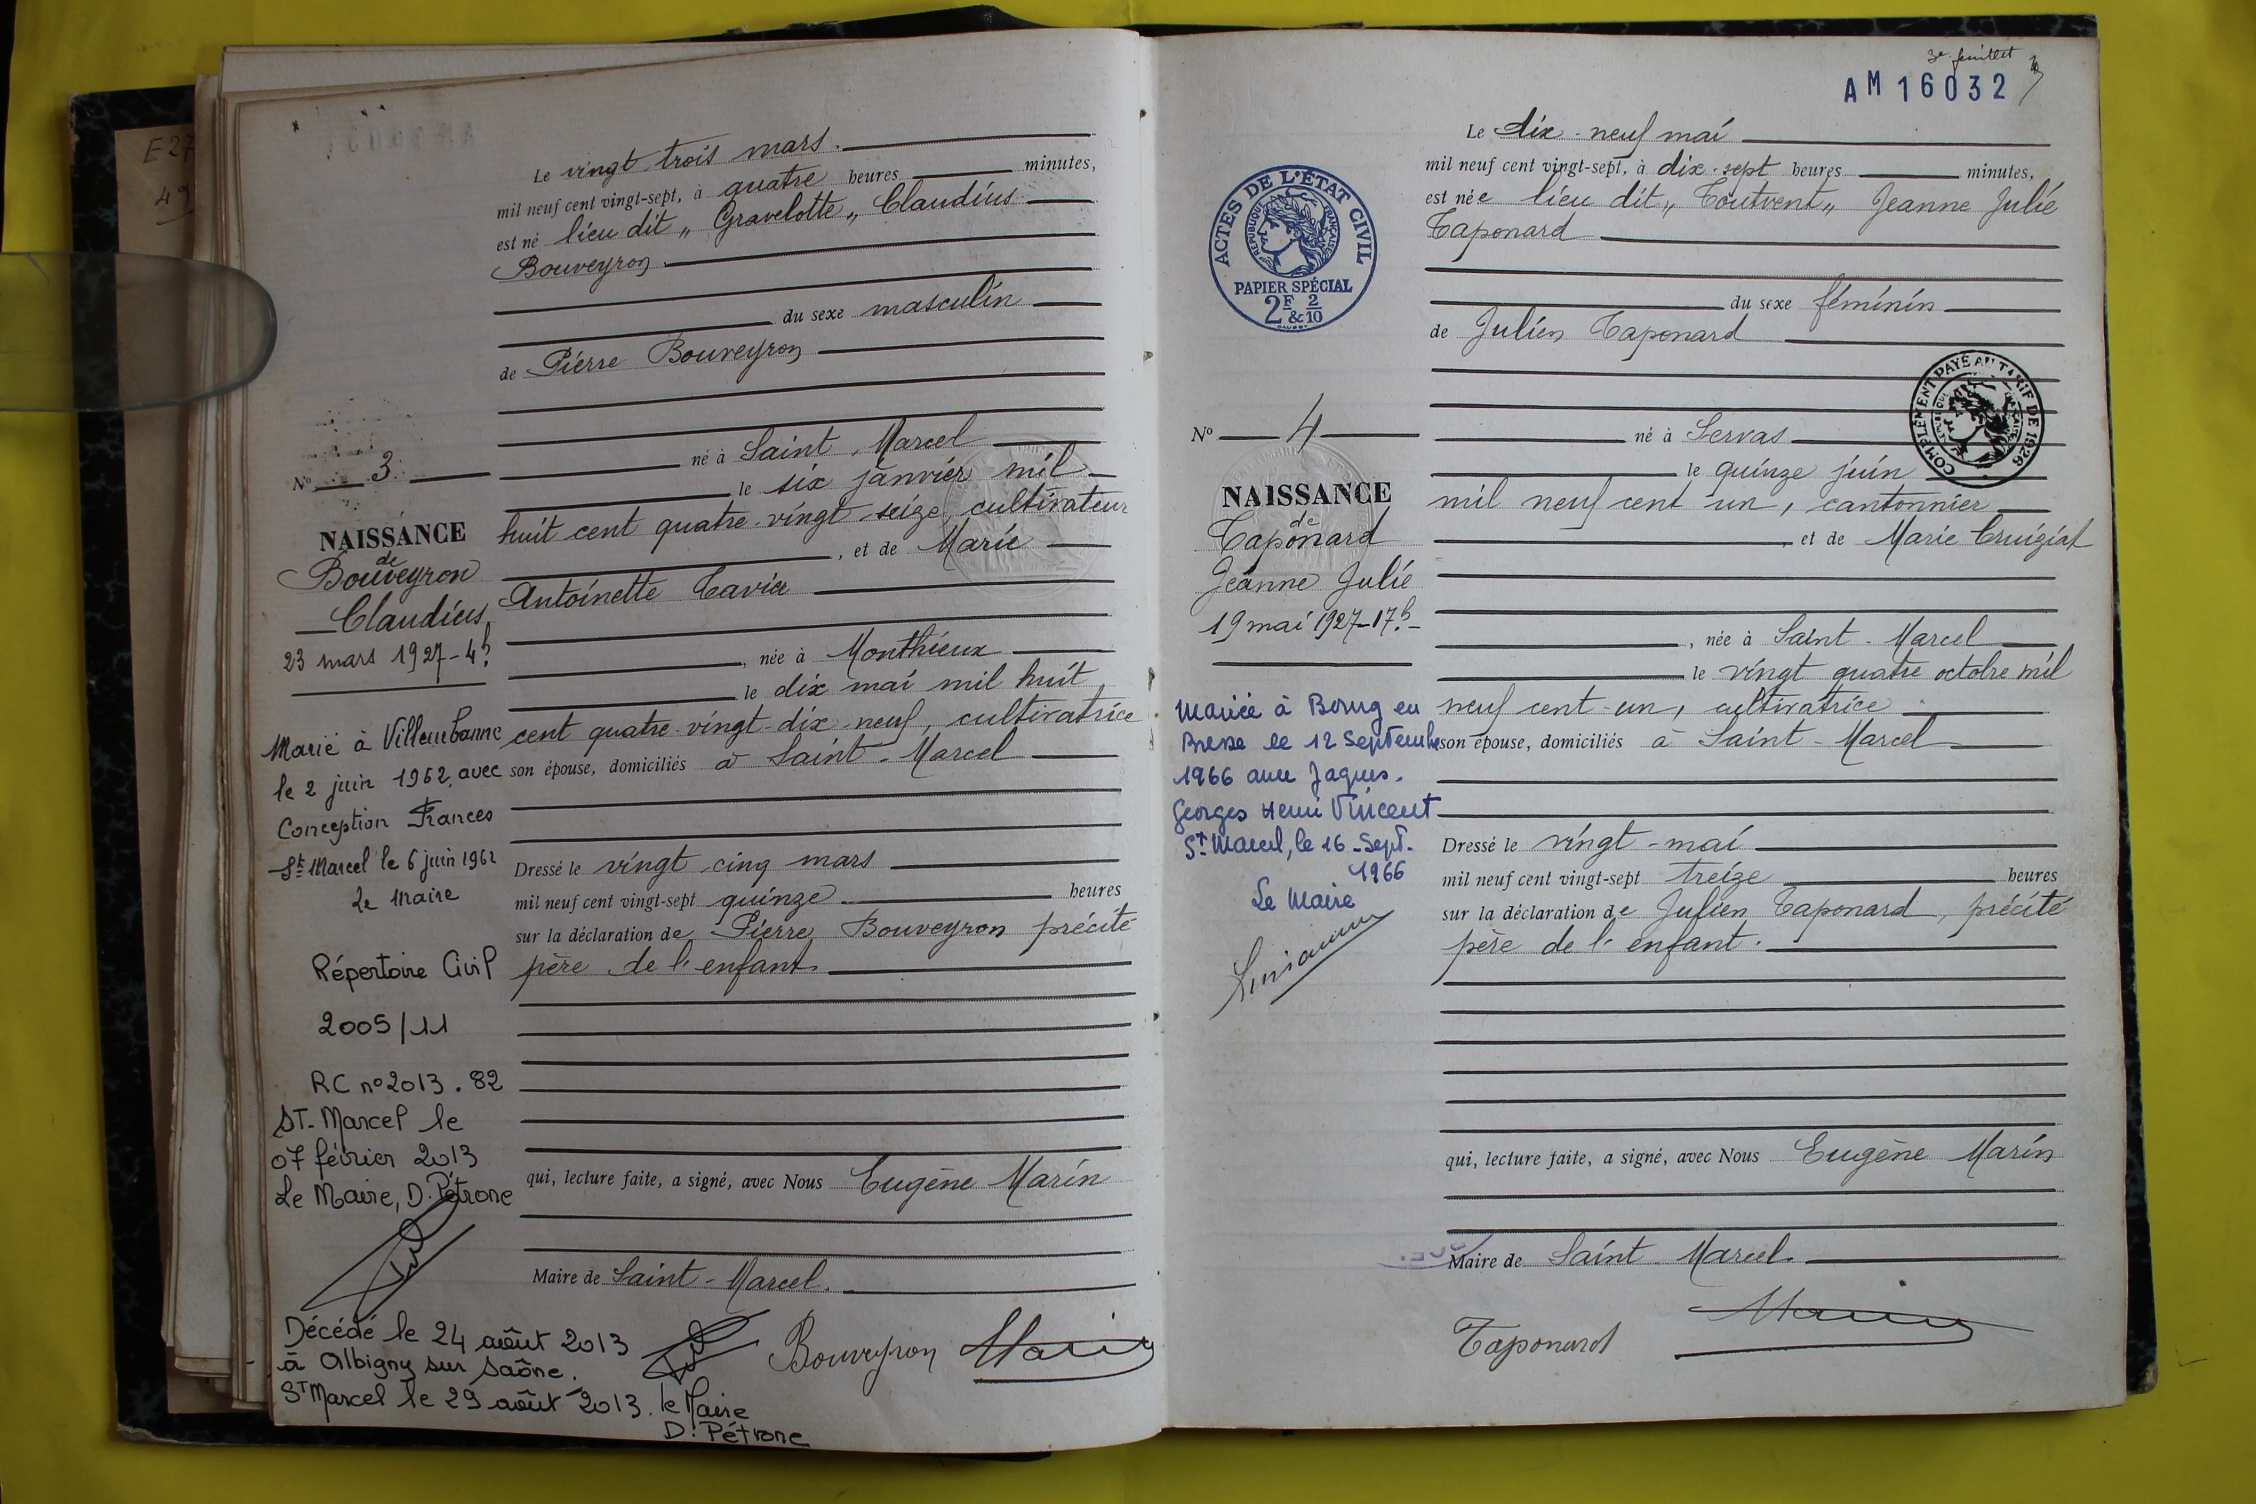 E 27
49
Le vingt trois mars.
mil neuf cent vingt-sept, à quatre heures minutes,
est né lieu dit „ Gravelotte „ Claudius
Bouveyron
du sexe masculin
de Pierre Bouveyron
né à Saint-Marcel
le six janvier mil
huit cent quatre-vingt-seize, cultivateur
, et de Marie
Antoinette
, née à Monthieux
le dix mai mil huit
cent quatre-vingt-dix-neuf, cultivatrice
son épouse, domiciliés à Saint-Marcel
Dressé le vingt-cinq mars
mil neuf cent vingt-sept quinze heures
sur la déclaration de Pierre Bouveyron précité
père de l'enfant
qui, lecture faite, a signé, avec Nous Eugène Marin
Maire de Saint-Marcel.
Bouveyron Marin
No 3
NAISSANCE
de
Bouveyron
Claudius
23 mars 1927-4h.
Marié à Villeurbanne
le 2 juin 1962 avec
Conception Frances
St Marcel le 6 juin 1962
Le Maire
Répertoire Civil
2005/11
RC n°2013.82
ST-Marcel le
07 février 2013
Le Maire, D. Pétrone
Décédé le 24 août 2013
à Albigny sur Saône.
ST Marcel le 29 août 2013. le Maire
D. Pétrone
3e feuillet
AM 16032
Le dix-neuf mai
mil neuf cent vingt-sept, à dix-sept heures minutes,
est née lieu dit „ Toutvent „ Jeanne Julie
Taponard
du sexe féminin
de Julien Taponard
né à Servas
le quinze juin
mil neuf cent un, cantonnier
, et de Marie Cruigiat
, née à Saint-Marcel
le vingt quatre octobre mil
neuf cent-un, cultivatrice
son épouse, domiciliés à Saint-Marcel
Dressé le vingt-mai
mil neuf cent vingt-sept treize heures
sur la déclaration de Julien Taponard, précité
père de l'enfant.
qui, lecture faite, a signé, avec Nous Eugène Marin
Maire de Saint-Marcel.
Taponard Marin
ACTES DE L'ÉTAT CIVIL
RÉPUBLIQUE FRANÇAISE
PAPIER SPÉCIAL
2F & 2/10
COMPLÉMENT PAYÉ AU TARIF DE 1926
No 4
NAISSANCE
de
Taponard
Jeanne Julie
19 mai 1927-17h-
Mariée à Bourg en
Bresse le 12 Septembre
1966 avec Jaques.
Georges Henri Vincent
ST Marcel, le 16-Sept.
1966
Le Maire